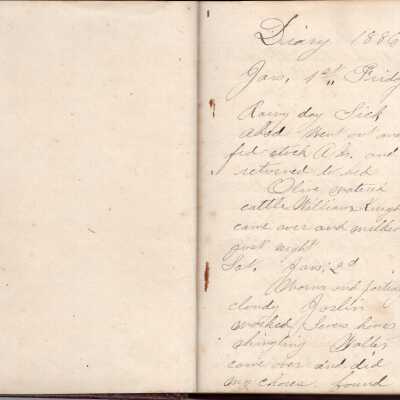 Diary 1886
Jan, 1st,, Frid
Rainy day Sick
abed Went out and
fed stock A.M. and
returned to bed
Olive watered
cattle William Knigh
came over and milked
quit night
Sat. Jan, 2d
Warm and partly
cloudy Joslin
worked
shingling Walter
came over and did
my chores. found